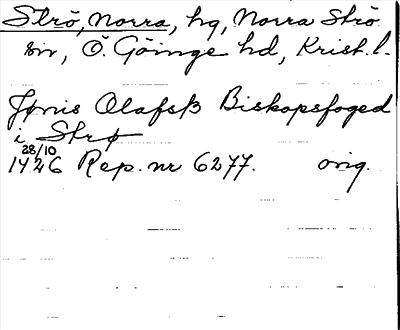 Strö, Norra, hg, Norra Strö
sn, Ö. Göinge hd, Krist. l.
Jønis Olafsß Biskopsfoged
i Strø
28/10
1426 Rep. nr 6277. orig.